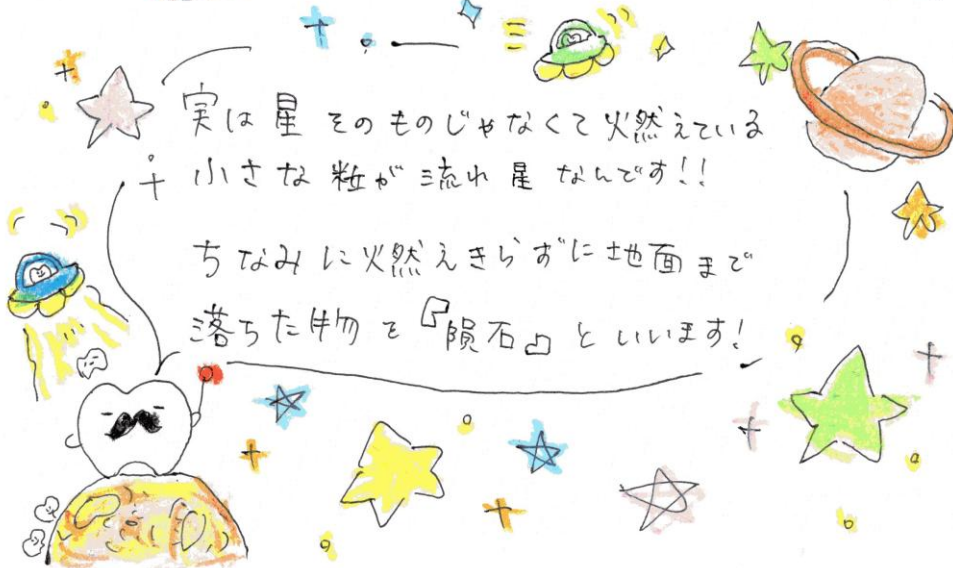 実は星そのものじゃなくて燃えている
小さな粒が流れ星なんです!!
ちなみに燃えきらずに地面まで
落ちた物を『隕石』といいます!